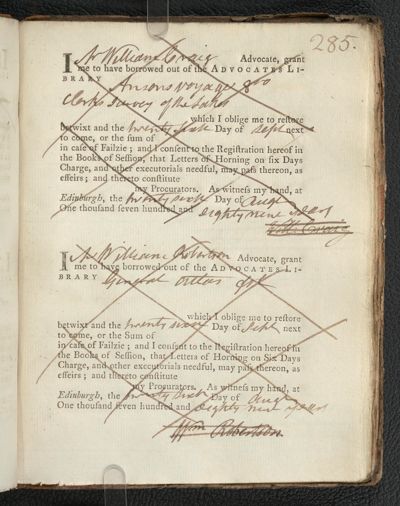 285.
I Mr William Craig Advocate, grant
me to have borrowed out of the ADVOCATES LI-
BRARY Ansons voyage 8vo
Clerks Survey of the Lakes
which I oblige me to reſtore
betwixt and the twenty sixth Day of Sept next
to come, or the ſum of
in caſe of Failzie ; and I conſent to the Regiſtration hereof in
the Books of Seſſion, that Letters of Horning on ſix Days
Charge, and other executorials needful, may paſs thereon, as
effeirs ; and thereto conſtitute
my Procurators. As witneſs my hand, at
Edinburgh, the twenty sixth Day of Augt
One thouſand ſeven hundred and eighty nine years
Will: Craig
I Mr William Robertson Advocate, grant
me to have borrowed out of the ADVOCATES LI-
BRARY General
which I oblige me to reſtore
betwixt and the twenty sixth Day of Sept next
to come, or the Sum of
in caſe of Failzie ; and I conſent to the Regiſtration hereof in
the Books of Seſſion, that Letters of Horning on Six Days
Charge, and other executorials needful, may paſs thereon, as
effeirs ; and thereto conſtitute
my Procurators. As witneſs my hand, at
Edinburgh, the twenty sixth Day of Augt
One thouſand ſeven hundred and eighty nine years
Wm Robertson.